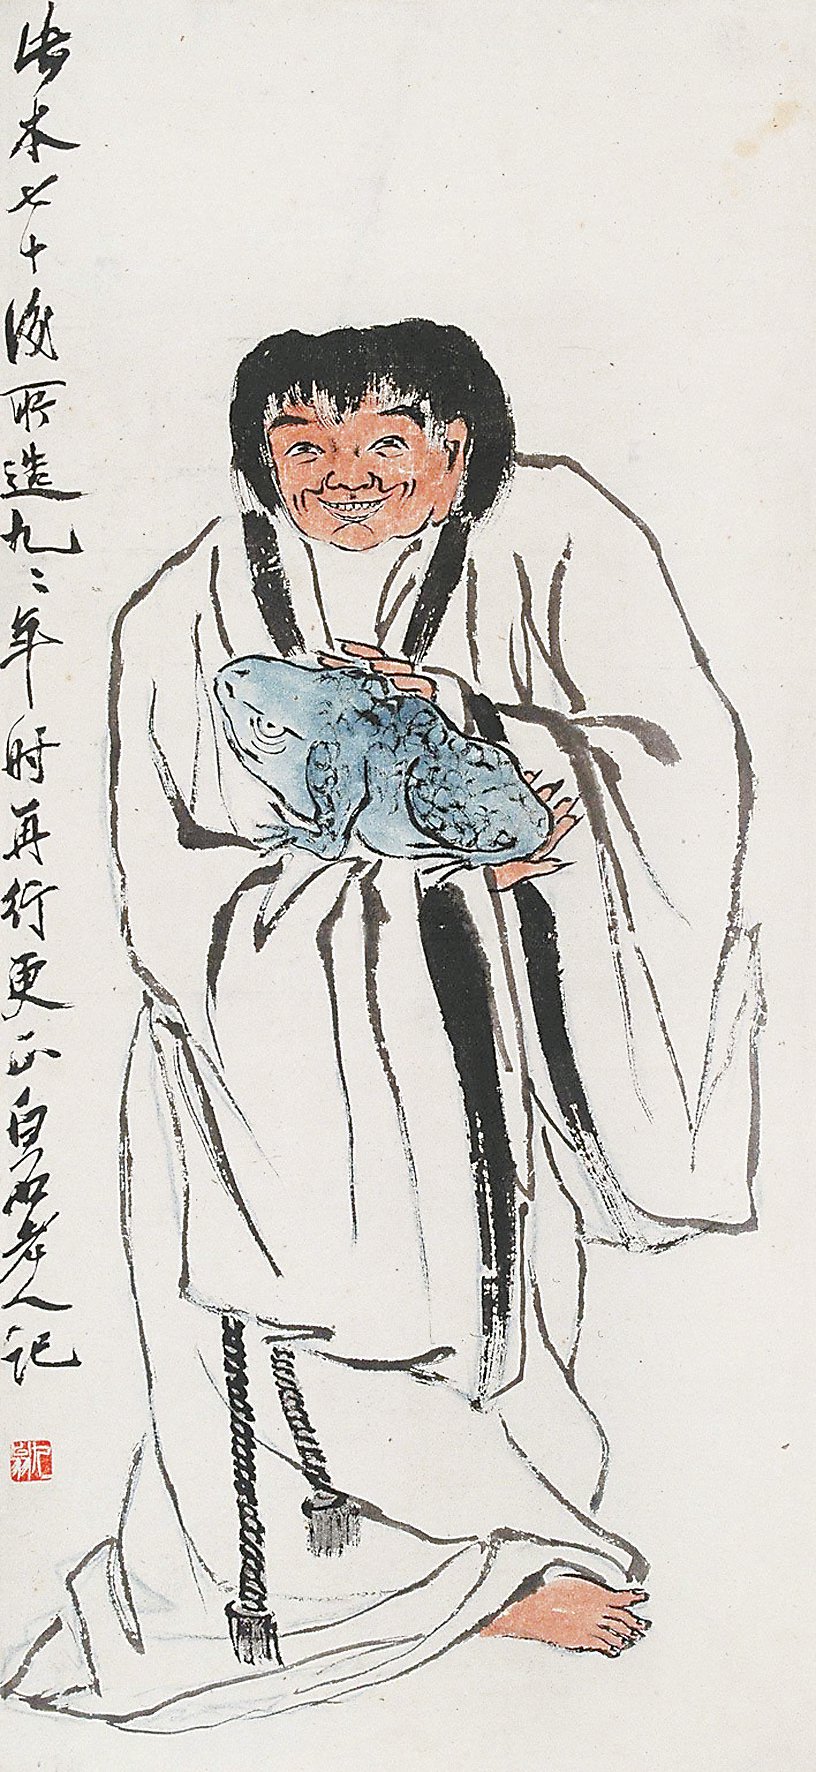 此本七十後所造九二年時再行更正白石老人記